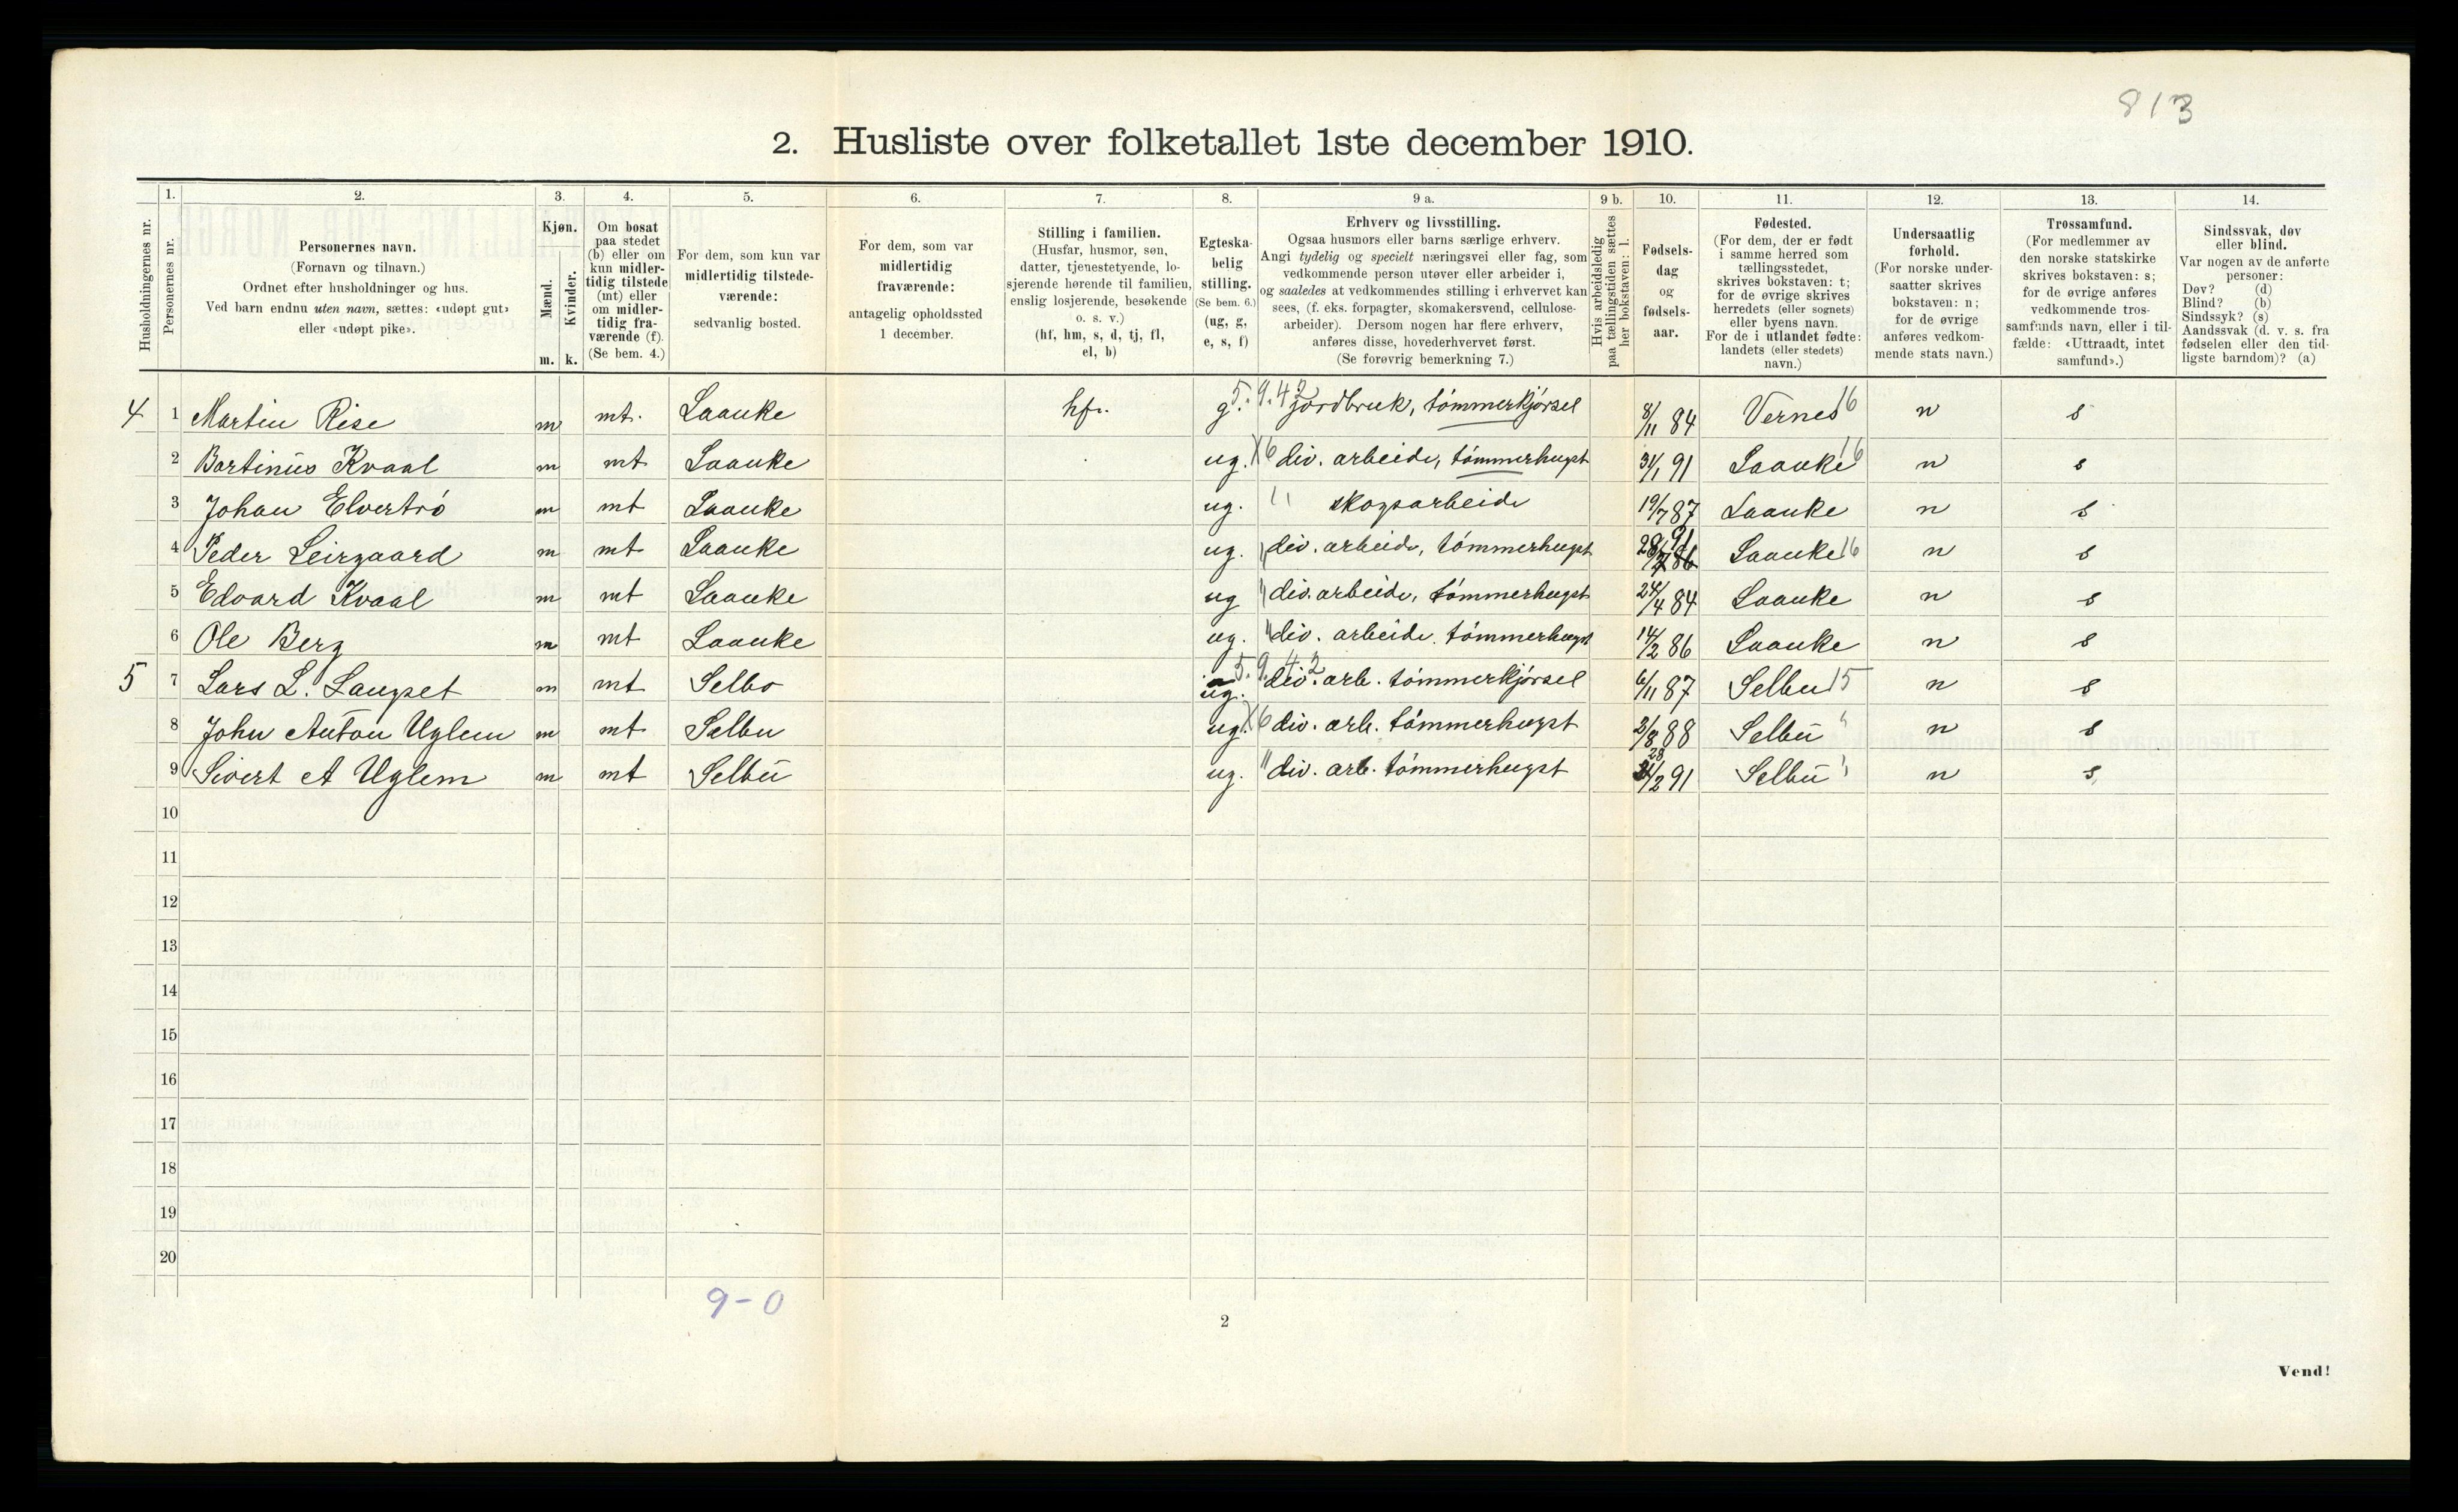 813
2. Husliste over folketallet 1ste december 1910.
Husholdningernes nr.
1. Personernes nr.
2. Personernes navn. (Fornavn og tilnavn.) Ordnet efter husholdninger og hus. Ved barn endnu uten navn, sættes: «udøpt gut» eller «udøpt pike».
3. Kjøn. Mænd. m. Kvinder. k.
4. Om bosat paa stedet (b) eller om kun midlertidig tilstede (mt) eller om midlertidig fraværende (f). (Se bem. 4.)
5. For dem, som kun var midlertidig tilstedeværende: sedvanlig bosted.
6. For dem, som var midlertidig fraværende: antagelig opholdssted 1 december.
7. Stilling i familien. (Husfar, husmor, søn, datter, tjenestetyende, losjerende hørende til familien, enslig losjerende, besøkende o. s. v.) (hf, hm, s, d, tj, fl, el, b)
8. Egteskabelig stilling. (Se bem. 6.) (ug, g, e, s, f)
9 a. Erhverv og livsstilling. Ogsaa husmors eller barns særlige erhverv. Angi tydelig og specielt næringsvei eller fag, som vedkommende person utøver eller arbeider i, og saaledes at vedkommendes stilling i erhvervet kan sees, (f. eks. forpagter, skomakersvend, cellulosearbeider). Dersom nogen har flere erhverv, anføres disse, hovederhvervet først. (Se forøvrig bemerkning 7.)
9 b. Hvis arbeidsledig paa tællingstiden sættes her bokstaven: l.
10. Fødselsdag og fødselsaar.
11. Fødested. (For dem, der er født i samme herred som tællingsstedet, skrives bokstaven: t; for de øvrige skrives herredets (eller sognets) eller byens navn. For de i utlandet fødte: landets (eller stedets) navn.)
12. Undersaatlig forhold. (For norske undersaatter skrives bokstaven: n; for de øvrige anføres vedkommende stats navn.)
13. Trossamfund. (For medlemmer av den norske statskirke skrives bokstaven: s; for de øvrige anføres vedkommende trossamfunds navn, eller i tilfælde: «Uttraadt, intet samfund».)
14. Sindssvak, døv eller blind. Var nogen av de anførte personer: Døv? (d) Blind? (b) Sindssyk? (s) Aandssvak (d. v. s. fra fødselen eller den tidligste barndom)? (a)
4 1 Martin Rise m mt. Laanke hf. g. 5.9.42 jordbruk, tömmerkjörsel 8/11 84 Vernes 16 n s
2 Bartinus Kvaal m mt Laanke ug. X6 div. arbeide, tömmerhugst 31/1 91 Laanke 16 n s
3 Johan Elvertrö m mt Laanke ug. " skogsarbeide 19/7 87 Laanke n s
4 Peder Leirgaard m mt Laanke ug. " div. arbeide, tömmerhugst Laanke 16 n s
5 Edvard Kvaal m mt Laanke ug " div. arbeide, tömmerhugst 24/4 84 Laanke n s
6 Ole Berg m mt Laanke ug. " div. arbeide. tömmerhugst 14/2 86 Laanke n s
5 7 Lars L. Laugset m mt Selbo ug. 5.9.42 div. arb. tömmerkjörsel 6/11 87 Selbu 15 n s
8 John Anton Uglem m mt Selbu ug. X6 div. arb. tömmerhugst 2/8 88 Selbu " n s
9 Sivert A Uglem m mt Selbu ug. " div. arb. tömmerhugst 28/2 91 Selbu " n s
10
11
12
13
14
15
16
17
18
19
20
9-0
2
Vend!